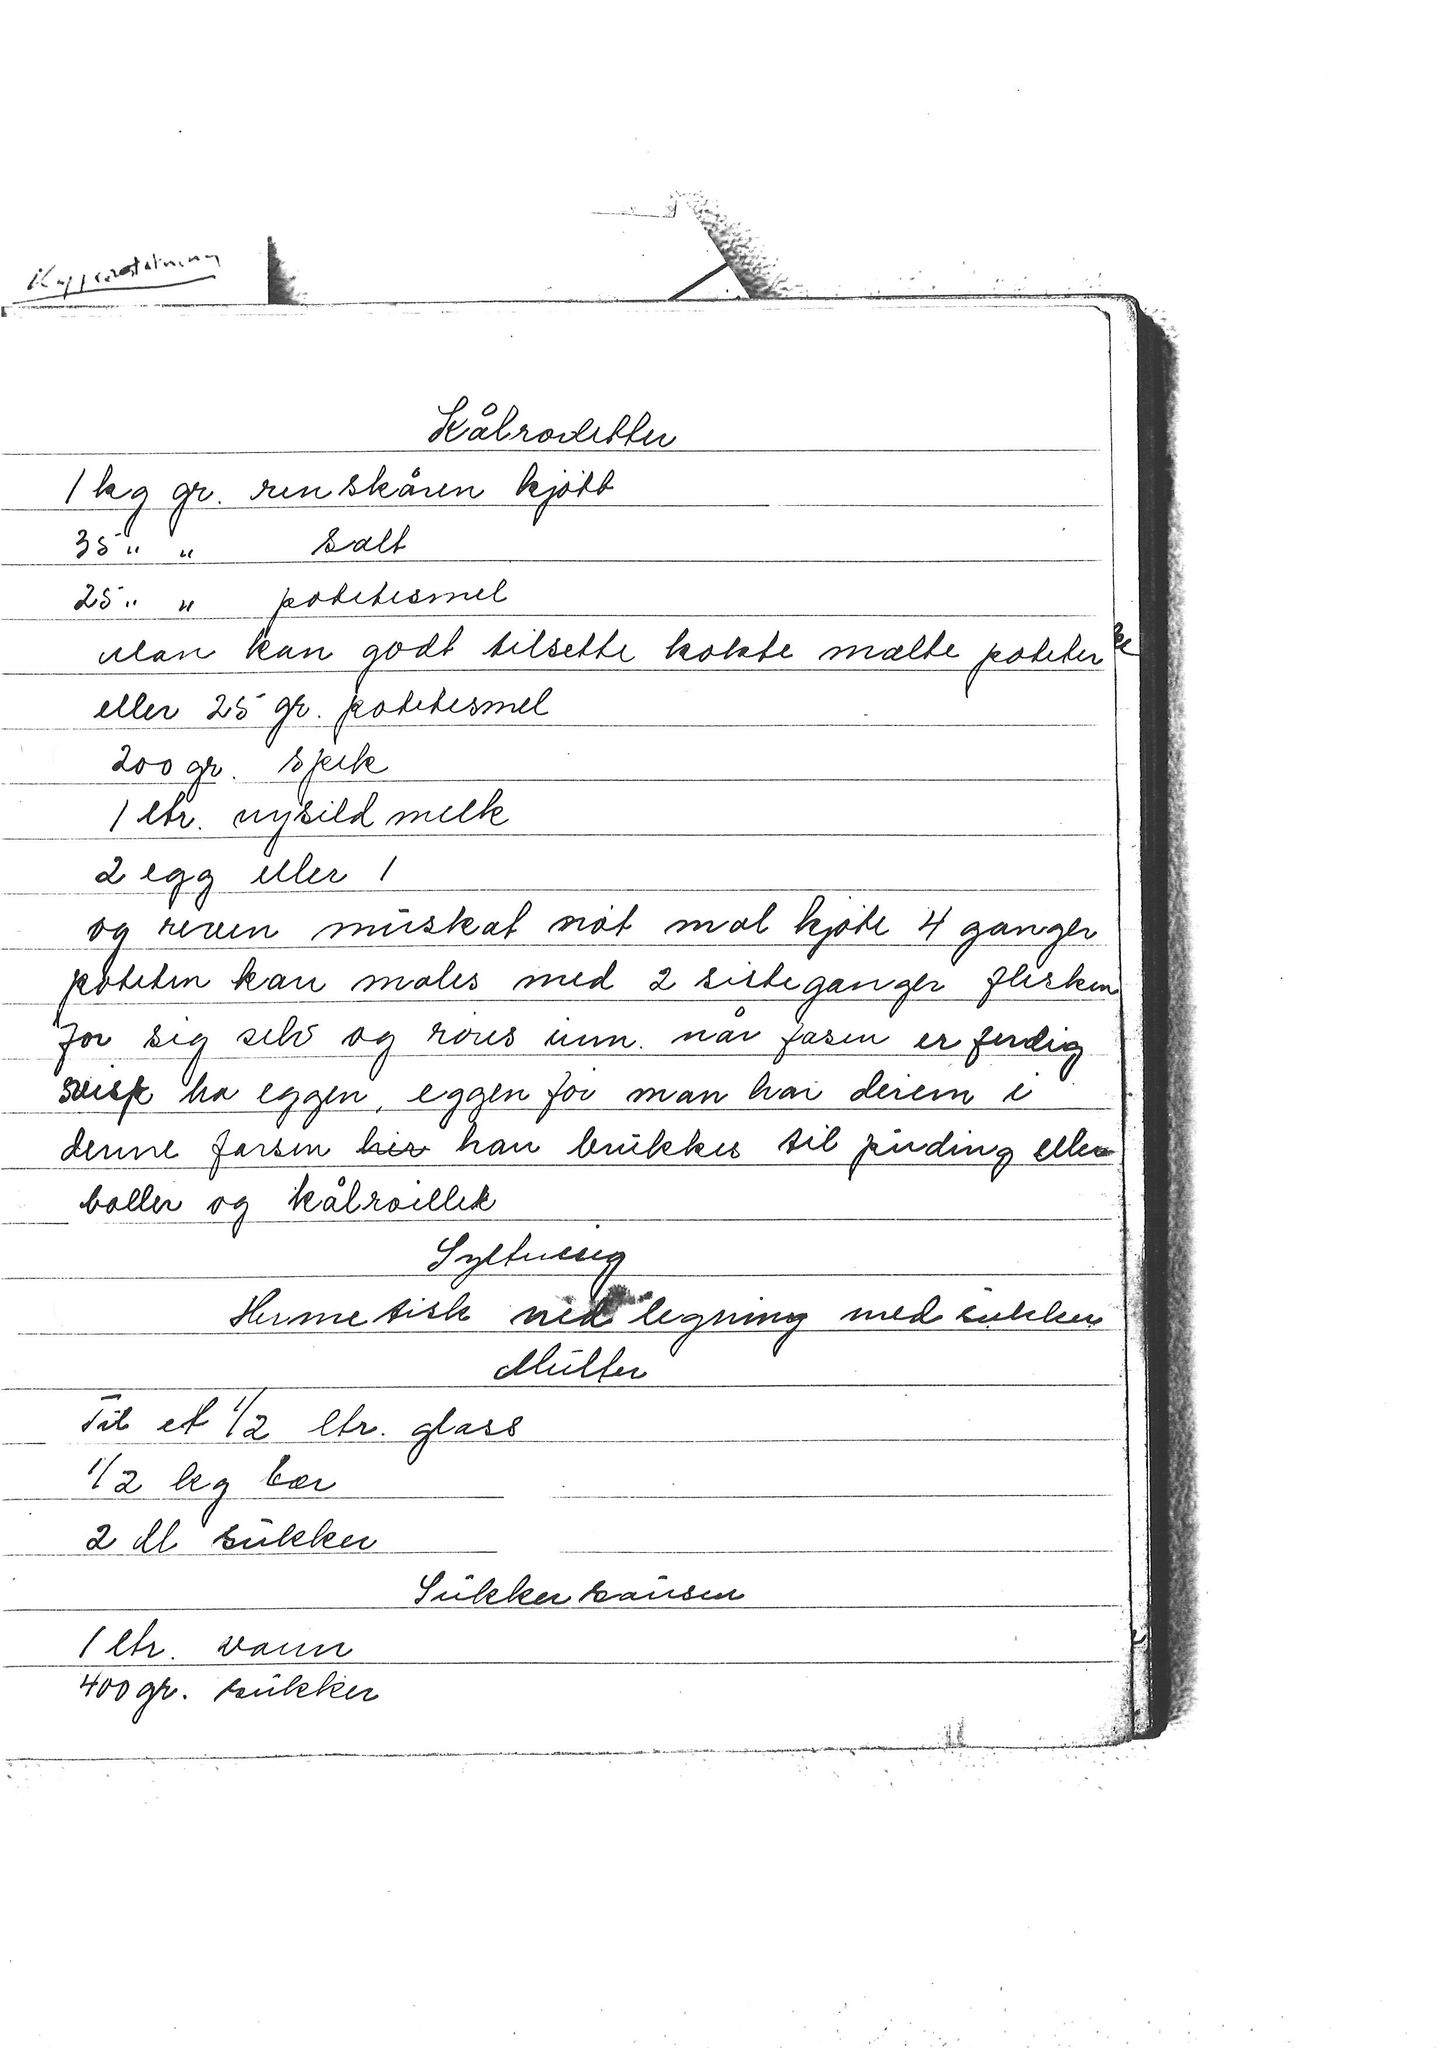 Kålrodetter
1 kg gr. renskåren kjøtt
35 " " salt
25 " " potetesmel
Man kan godt tilsette kokte malte poteter
eller 25 gr. potetesmel
200 gr. spek
1 ltr. nysild melk
2 egg eller 1
og reven muskat nøt mal kjøte 4 ganger
poteten kan males med 2 siste ganger flesken
for sig selv og røres inn. når fasen er ferdig
visp ha eggen, eggen før man har derem i
denne farsen kan brukkes til puding eller
boller og kålroellek
Syltning
Hermetisk ned legning med sukker
Multer
Til et 1/2 ltr. glass
1/2 kg bær
2 dl sukker
Sukker sausen
1 ltr. vann
400 gr. sukker